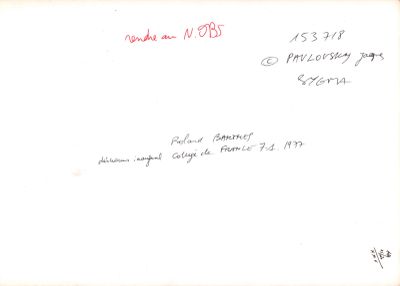 rendre au N.OBS
153718
© PAVLOVSKY Jacques
SYGMA
Roland BARTHES
discours inaugural Collège de FRANCE 7.1.1977